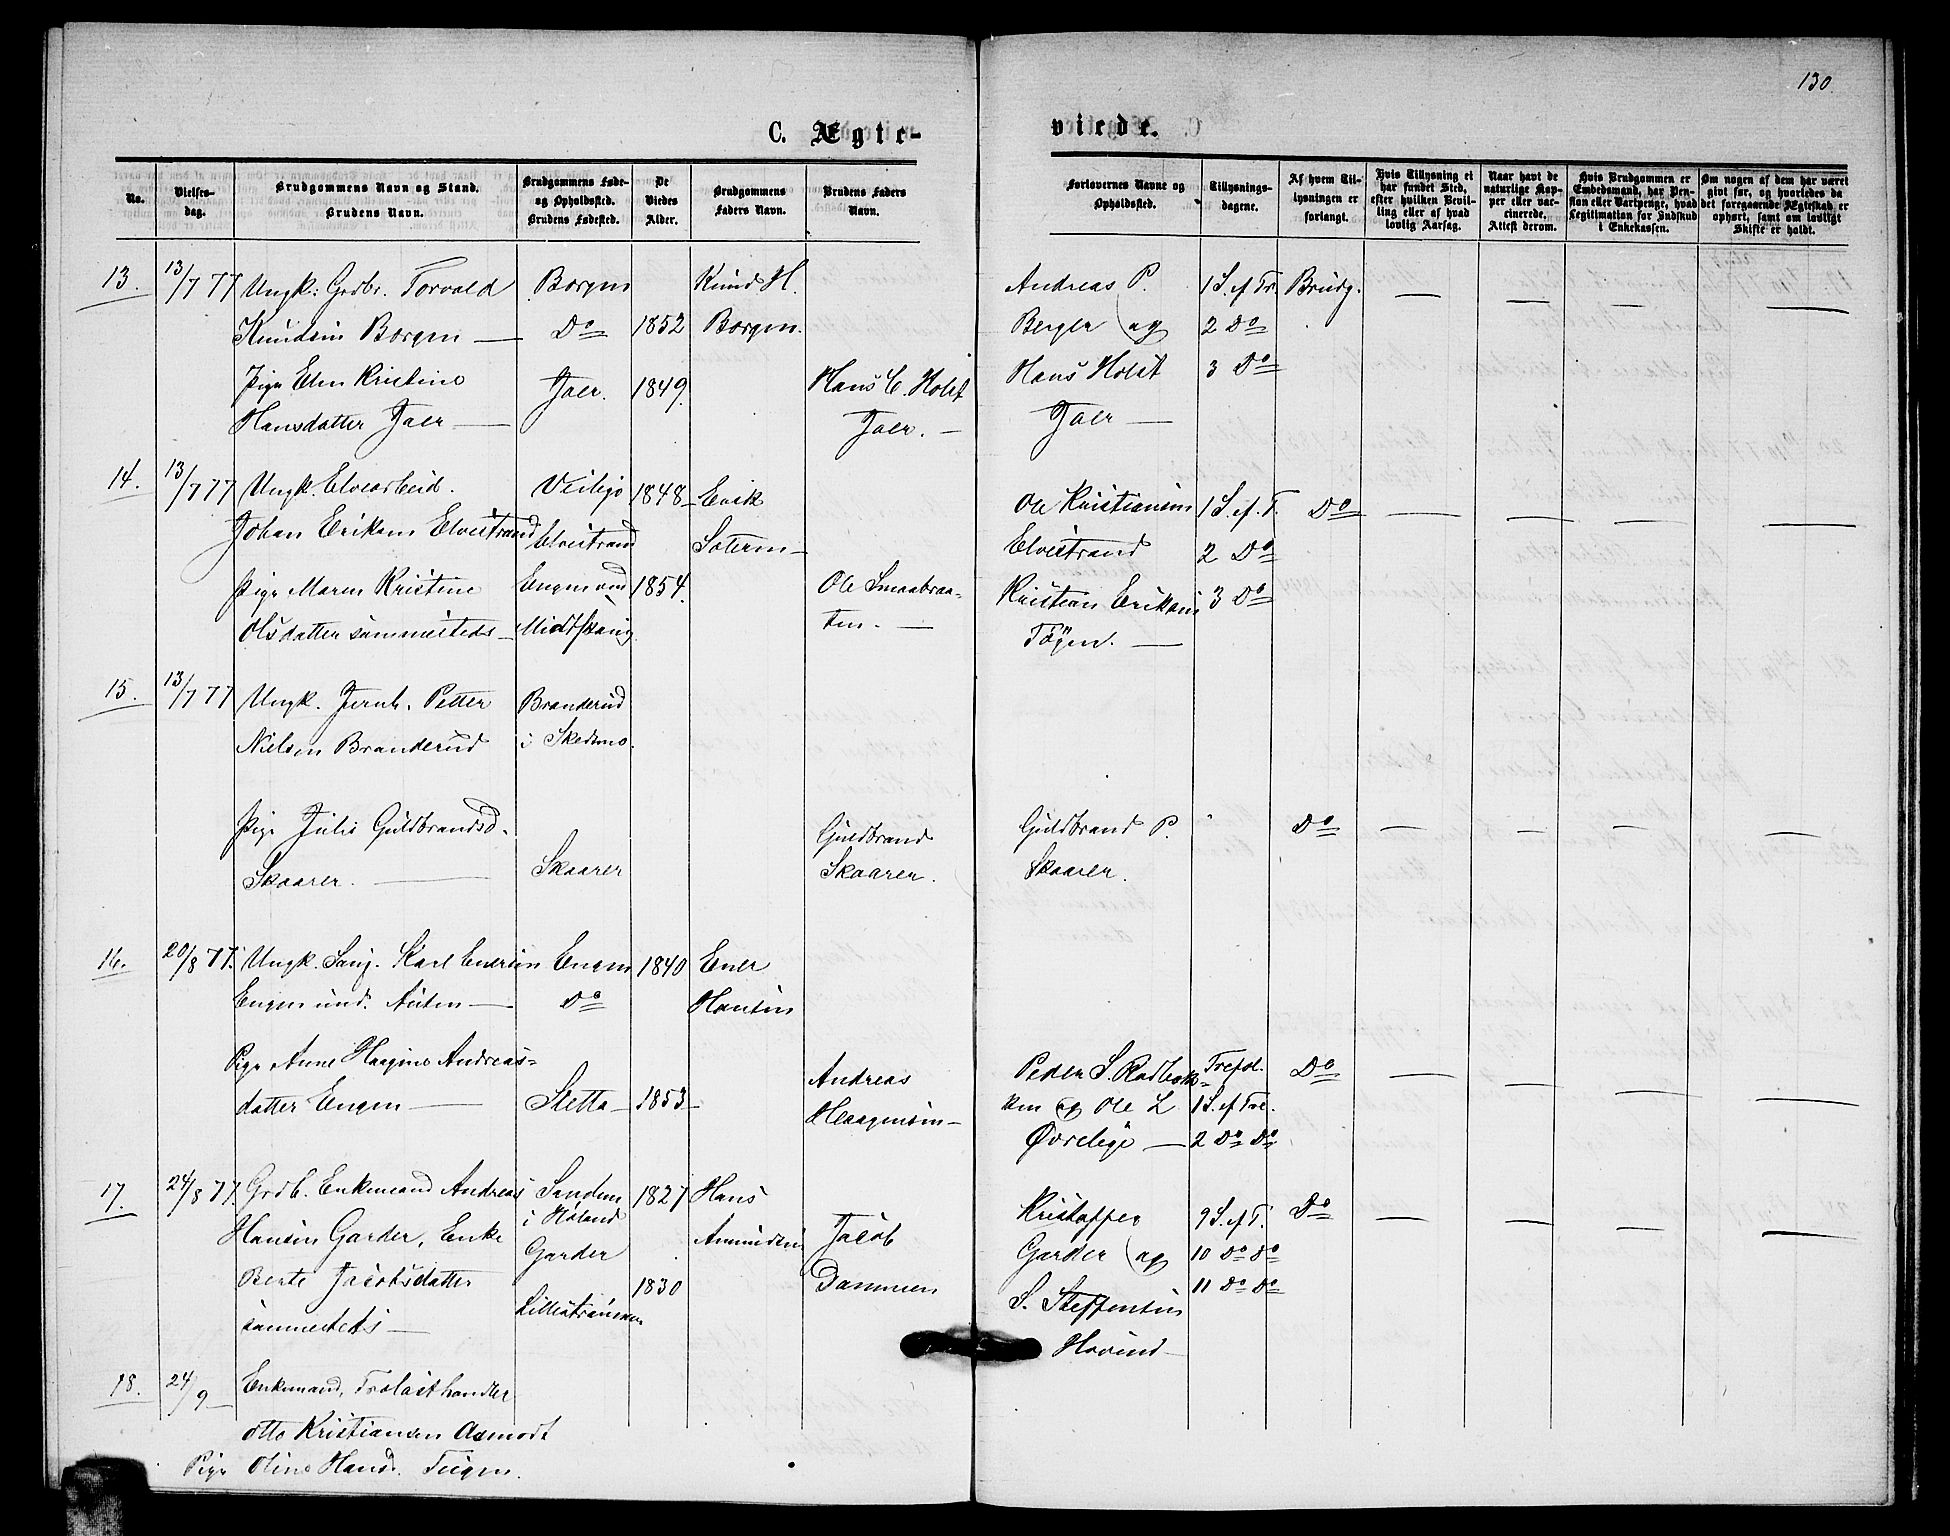 130.
C. Ægte-
viede.
No.
Vielses-
dag.
Brudgommens Navn og Stand.
Brudens Navn.
Brudgommens Føde-
og Opholdssted.
Brudens Fødested.
De
Viedes
Alder.
Brudgommens
Faders Navn.
Brudens Faders
Navn.
Forlovernes Navne og
Opholdssted.
Tillysnings-
dagene.
Af hvem Til-
lysningen er
forlangt.
Hvis Tillysning ei
har fundet Sted,
efter hvilken Bevil-
ling eller af hvad
lovlig Aarsag.
Naar havt de
naturlige Kop-
per eller vac-
cinerede.
Attest derom.
Hvis Brudgommen er
Embedsmand, har Pen-
sion eller Vartpenge, hvad
Legitimation for Indskud
i Enkekassen.
Om nogen af dem har været
gift før, og hvorledes da
det foregaaende Ægteskab er
ophørt, samt om lovligt
Skifte er holdt.
13. 13/7 77 Ungk: Grdbr. Torvald Borgen Knud H. Andreas P. 1 S. ef Tr. Brudg. — — — —
Knudsen Borgen — Do 1852 Borgen. Berger og 2 Do
Pige Elen Kristine Jaer. 1849. Hans C. Holst Hans Holst 3 Do
Hansdatter Jaer — Jaer. — Jaer —
14. 13/7 77 Ungk. Elvearbeid. 1848 Erik Ole Kristiansen 1 S. ef. T. Do — — — —
Johan Eriksen Elvestrand Elvestrand Elvestrand 2 Do
Pige Maren Kristine Engen 1854. Ole Smaabraa- Kristian Eriksen 3 Do
Olsdatter sammesteds — Midtskoug ten. — Tøyen. —
15. 13/7 77 Ungk. Jernb. Petter Branderud
Nielsen Branderud i Skedsmo.
Pige Julie Guldbrandsd. Guldbrand Guldbrand P. " Do — — — —
Skaarer. — Skaarer Skaarer. Skaarer.
16. 20/8 77. Ungk. Karl Enersen Engen 1840 Ener
Engen und. — Do Hansen
Pige Anne Haagine Andreas- Andreas Peder S. Do — — — —
datter Engen — Sletta — 1853 — Haagensen — og Ole L. 1 S. ef Tre.
Øvrelige — 2 Do Do
17. 24/8 77. Grdb. Enkemand Andreas Sanden 1827 Hans Kristoffer 9 S. ef T. Do — — — —
Hansen Garder, Enke i Høland Amundsen Jacob Garder og 10 Do Do
Berte Jacobsdatter Garder 1830 Dammen S. Steffensen 11 Do Do
sammesteds — Hovind —
18. 24/9 — Enkemand, Trælasthandler
Otto Kristiansen Asmodt
Pige Oline Hansd. Tuegen.